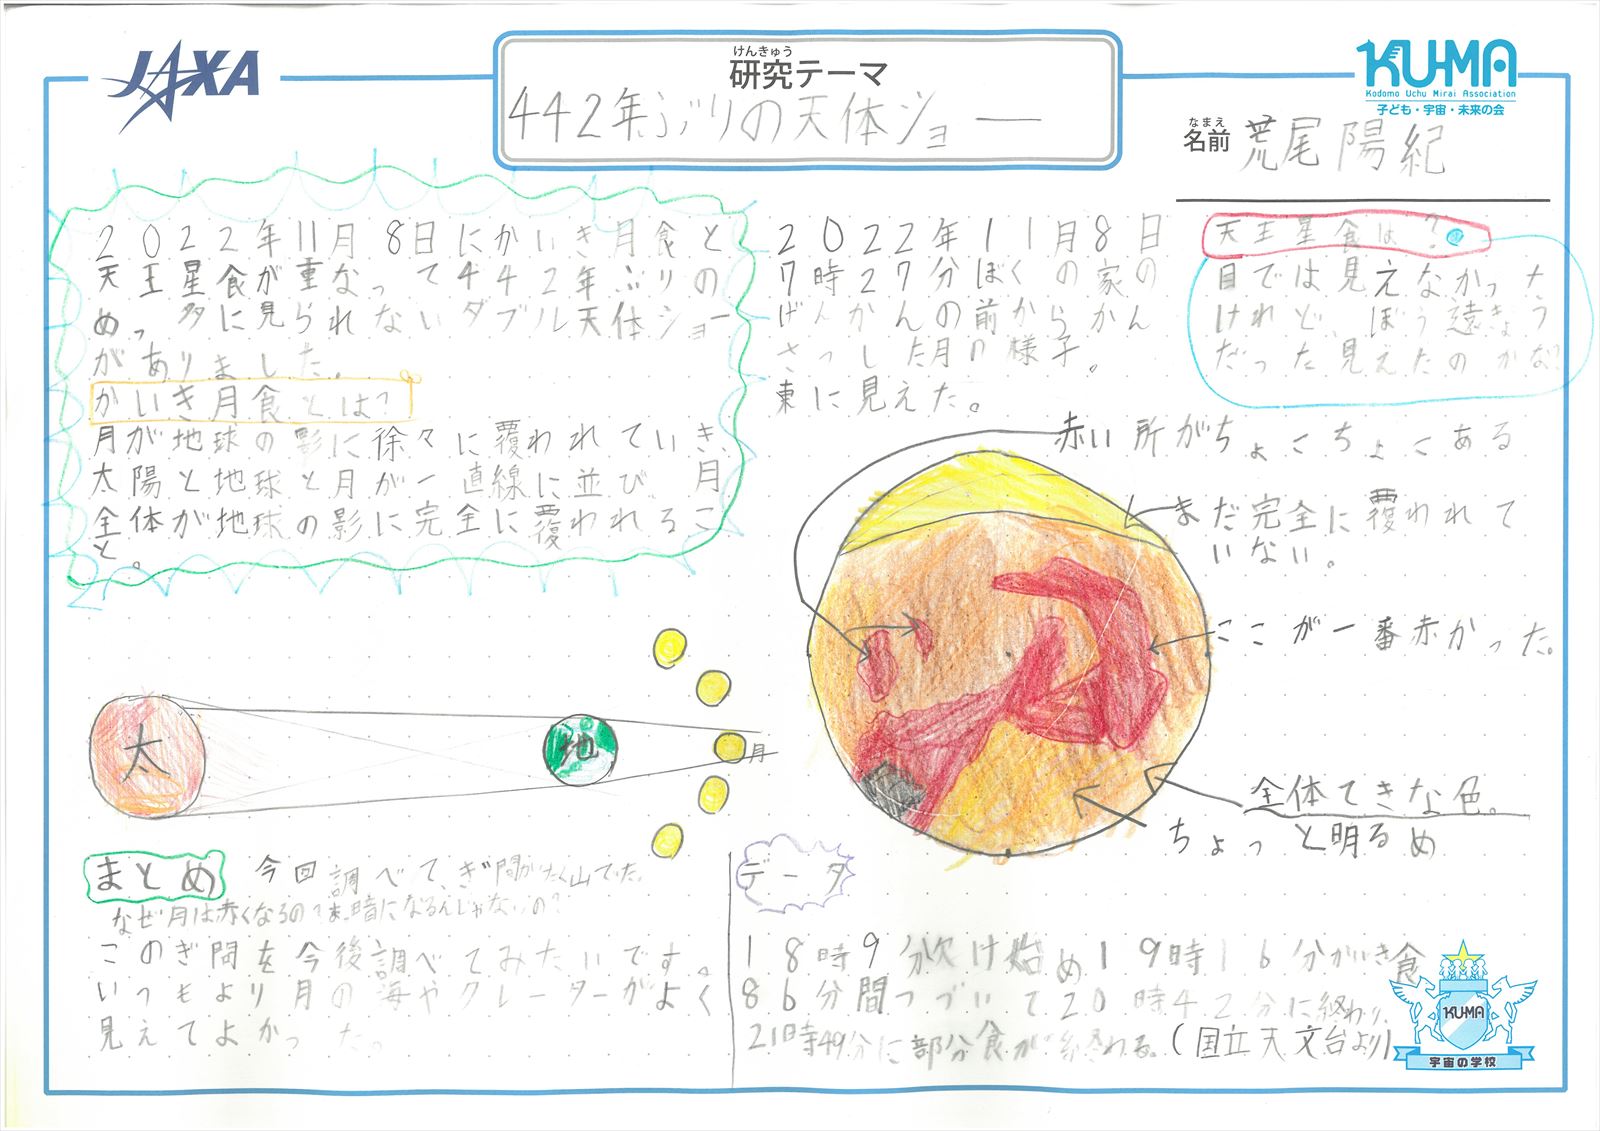 JAXA
けんきゅう
研究テーマ
442年ぶりの天体ショー
KU-MA
Kodomo Uchu Mirai Association
子ども・宇宙・未来の会
なまえ
名前 荒尾陽紀
2022年11月8日にかいき月食と
天王星食が重なって442年ぶりの
めった多に見られないダブル天体ショー
がありました。
かいき月食とは?
月が地球の影に徐々に覆われていき、
太陽と地球と月が一直線に並び 月
全体が地球の影に完全に覆われるこ
と。
2022年11月8日
7時27分ぼくの家の
げんかんの前からかん
さっした月の様子。
東に見えた。
天王星食は?
目では見えなかった
けれど、ぼう遠きょう
だった見えたのかな?
赤い所がちょこちょこある
まだ完全に覆われて
いない。
ここが一番赤かった。
全体てきな色。
ちょっと明るめ
太
地
月
まとめ 今回調べて、ぎ問がたく山でた。
なぜ月は赤くなるの?ま暗になるんじゃないの?
このぎ問を今後調べてみたいです。
いつもより月の海やクレーターがよく
見えてよかった。
データ
18時9分欠け始め19時16分かいき食
86分間つづいて20時42分に終わり、
21時49分に部分食が終わる。(国立天文台より)
KU-MA
宇宙の学校